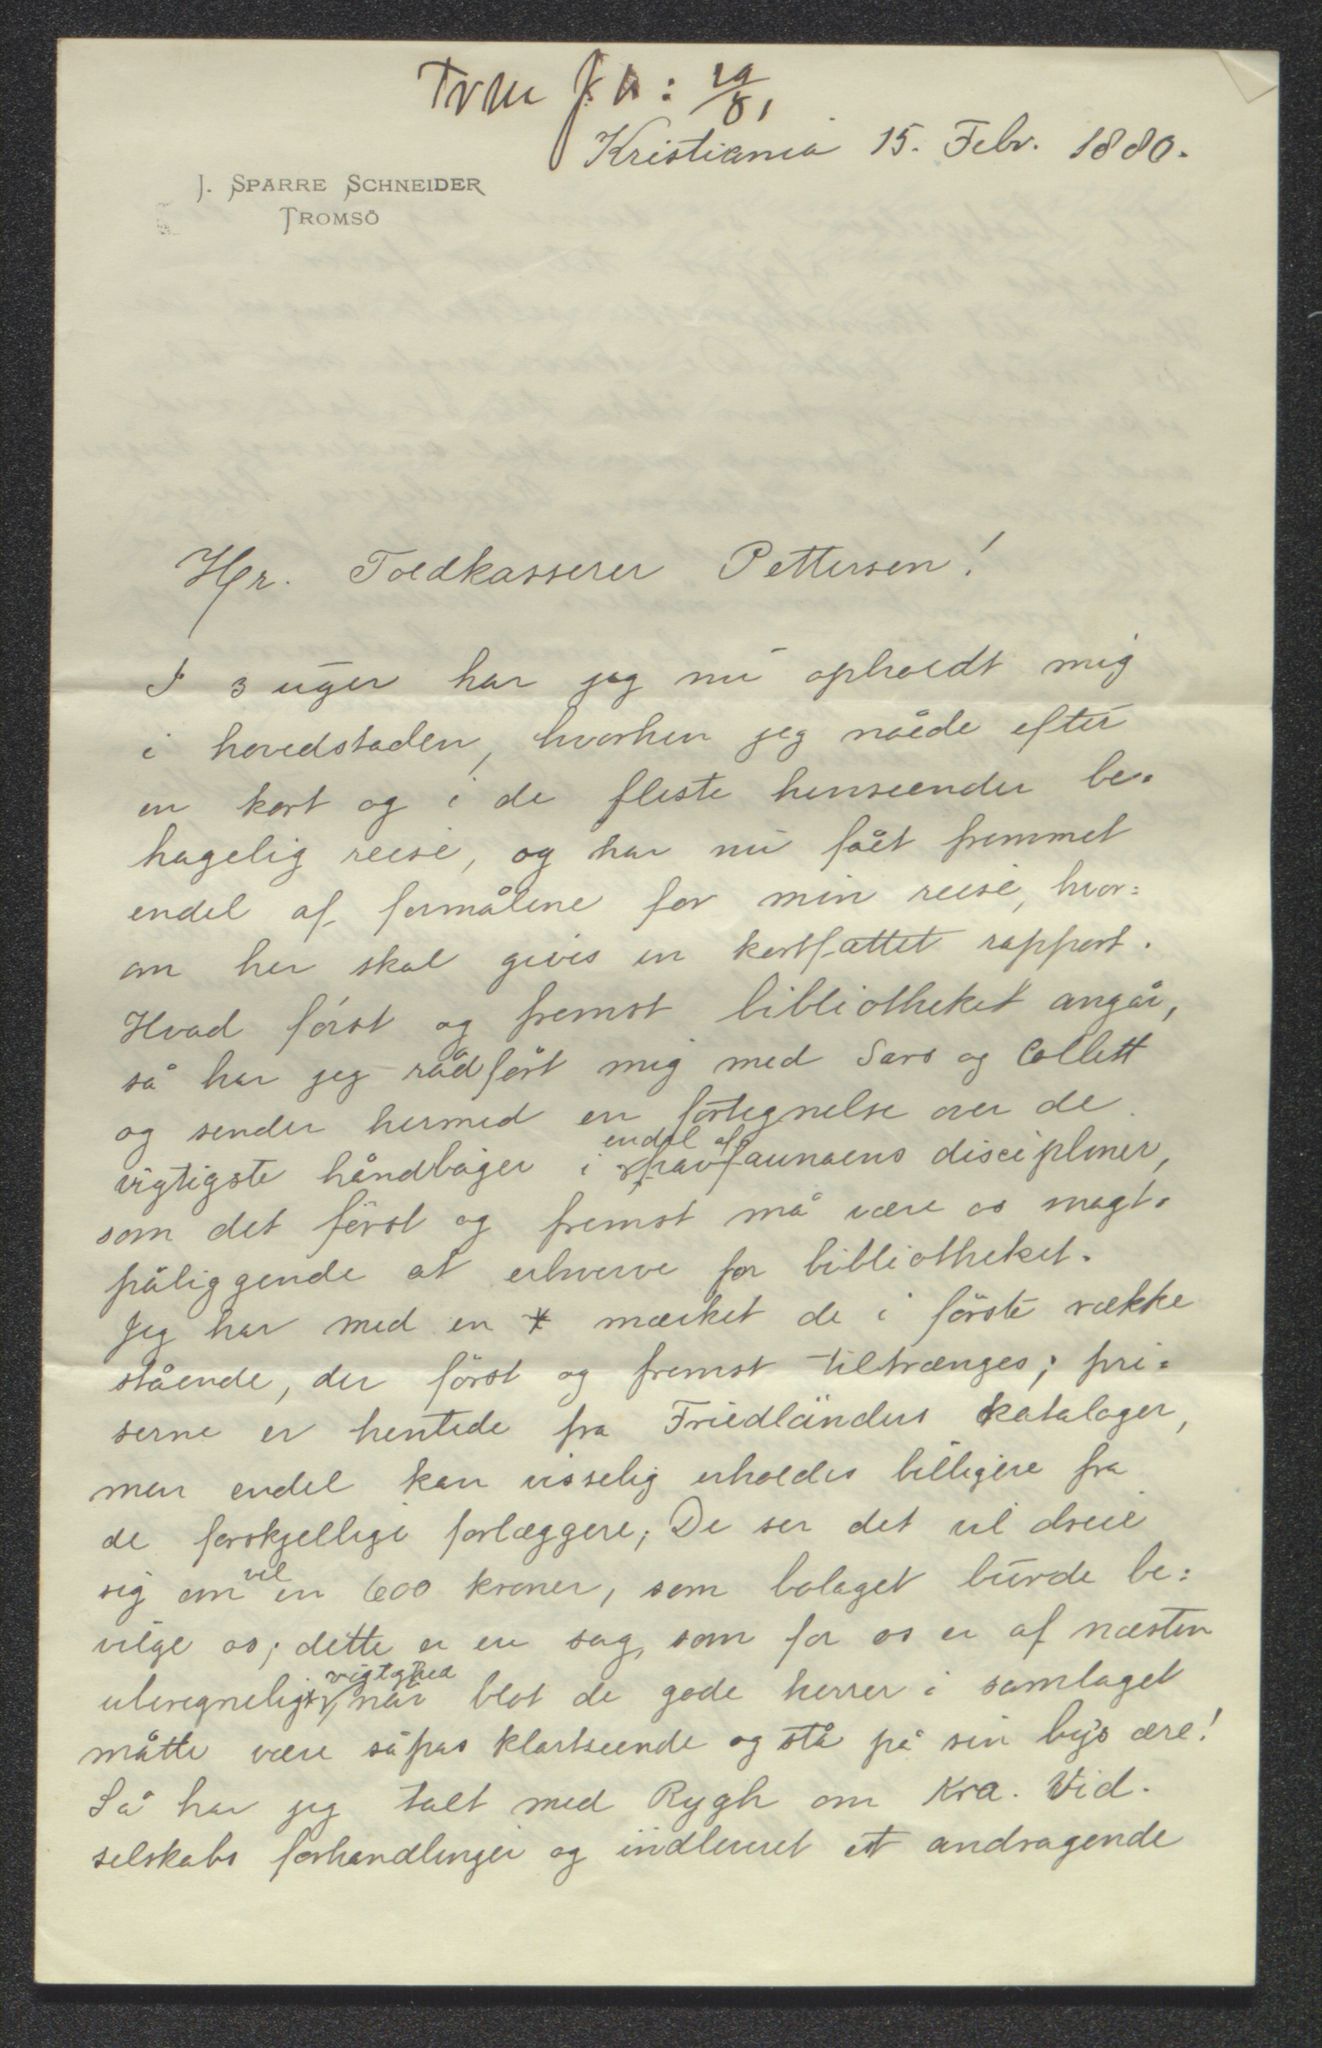 Trm J. N: 19/81
Kristiania 15. Febr. 1880.
J. SPARRE SCHNEIDER
TROMSÖ
Hr. Toldkasserer Pettersen!
I 3 uger har jeg nu opholdt mig
i hovedstaden, hvorhen jeg nåede efter
en kort og i de fleste henseender be=
hagelig reise, og har nu fået fremmet
endel af formålene for min reise, hvor=
om her skal gives en kortfattet rapport.
Hvad först og fremst bibliotheket angår,
så har jeg rådfört mig med Sars og Collett
og sender hermed en fortegnelse over de
vigtigste håndböger i endel af havfaunaens discipliner,
som det först og fremst må være os magt=
påliggende at erhverve for bibliotheket.
Jeg har med en * mærket de i förste række
stående, der först og fremst tiltrænges; pri=
serne er hentede fra Friedländers kataloger,
men endel kan visselig erholdes billigere fra
de forskjellige forlæggere; De ser det vil dreie
sig om vel en 600 kroner, som bolaget burde be=
vilge os; dette er en sag, som for os er af næsten
uberegnelig vigtighed, når blot de gode herrer i samlaget
måtte være såpas klartseende og stå på sin bys ære!
Så har jeg talt med Rygh om Kra. Vid.
selskabs forhandlinger og indleveret et andragende